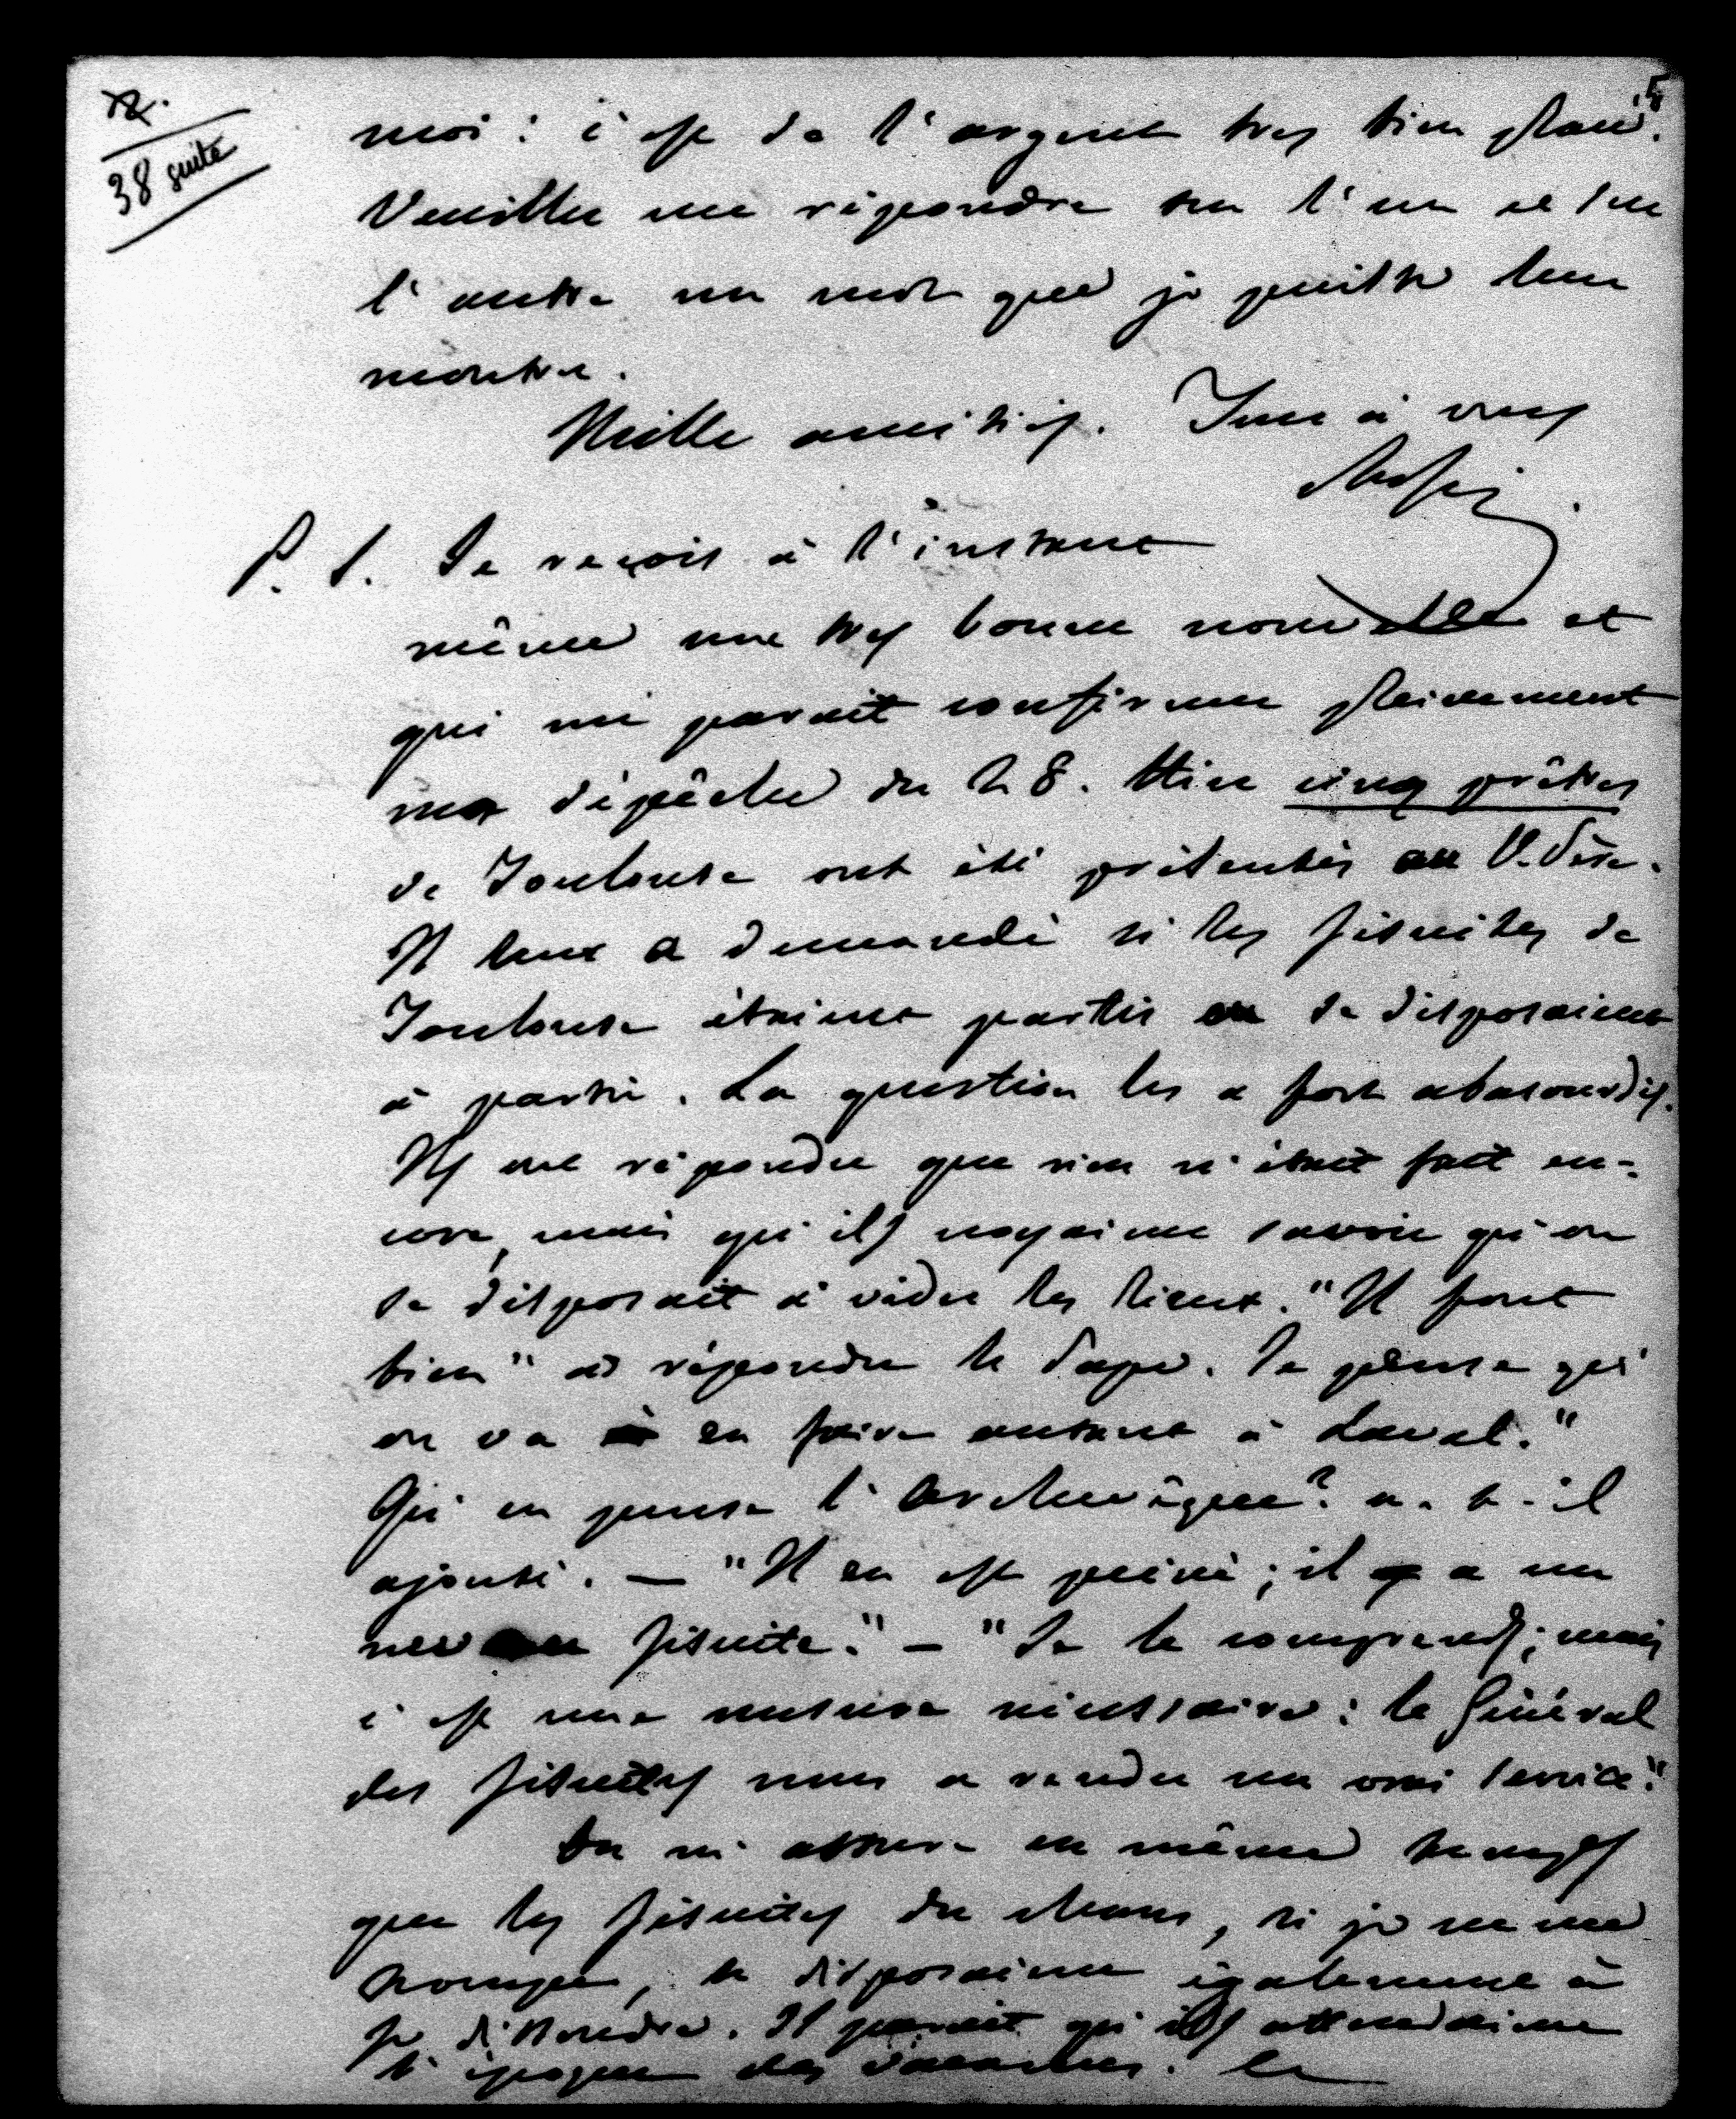 38 suite
5
moi : c'est de l'argent très bien placé.
Veuillez me répondre sur l'un et sur
l'autre un mot que je puisse leur
montrer.
Mille amitiés. Tout à vous
Rossi
P. S. Je reçois à l'instant
même une très bonne nouvelle et
qui me parait confirmer pleinement
ma dépêche du 28. Hier cinq prêtres
de Toulouse ont été présentés au S. Père.
Il leur a demandé si les Jésuites de
Toulouse étaient partis ou se disposaient
à partir. La question les a fort abasourdis.
Ils ont répondu que rien n'était fait en-
core, mais qu'ils croyaient savoir qu'on
se disposait à vider les lieux. "Il font
bien" a répondu le Pape. Je pense qu'
on va en faire autant à Laval."
Qu'en pense l'Archevêque? a-t-il
ajouté. — "Il en est peiné ; il a un
neveu Jésuite." — "Je le comprends ; mais
c'est une mesure nécessaire : le Général
des Jésuites nous a rendu un vrai service."
On m'assure en même temps
que les Jésuites du Mans, si je ne me
trompe, se disposaient également à
se dissoudre. Il parait qu'ils attendaient
l'époque des vacances. Le